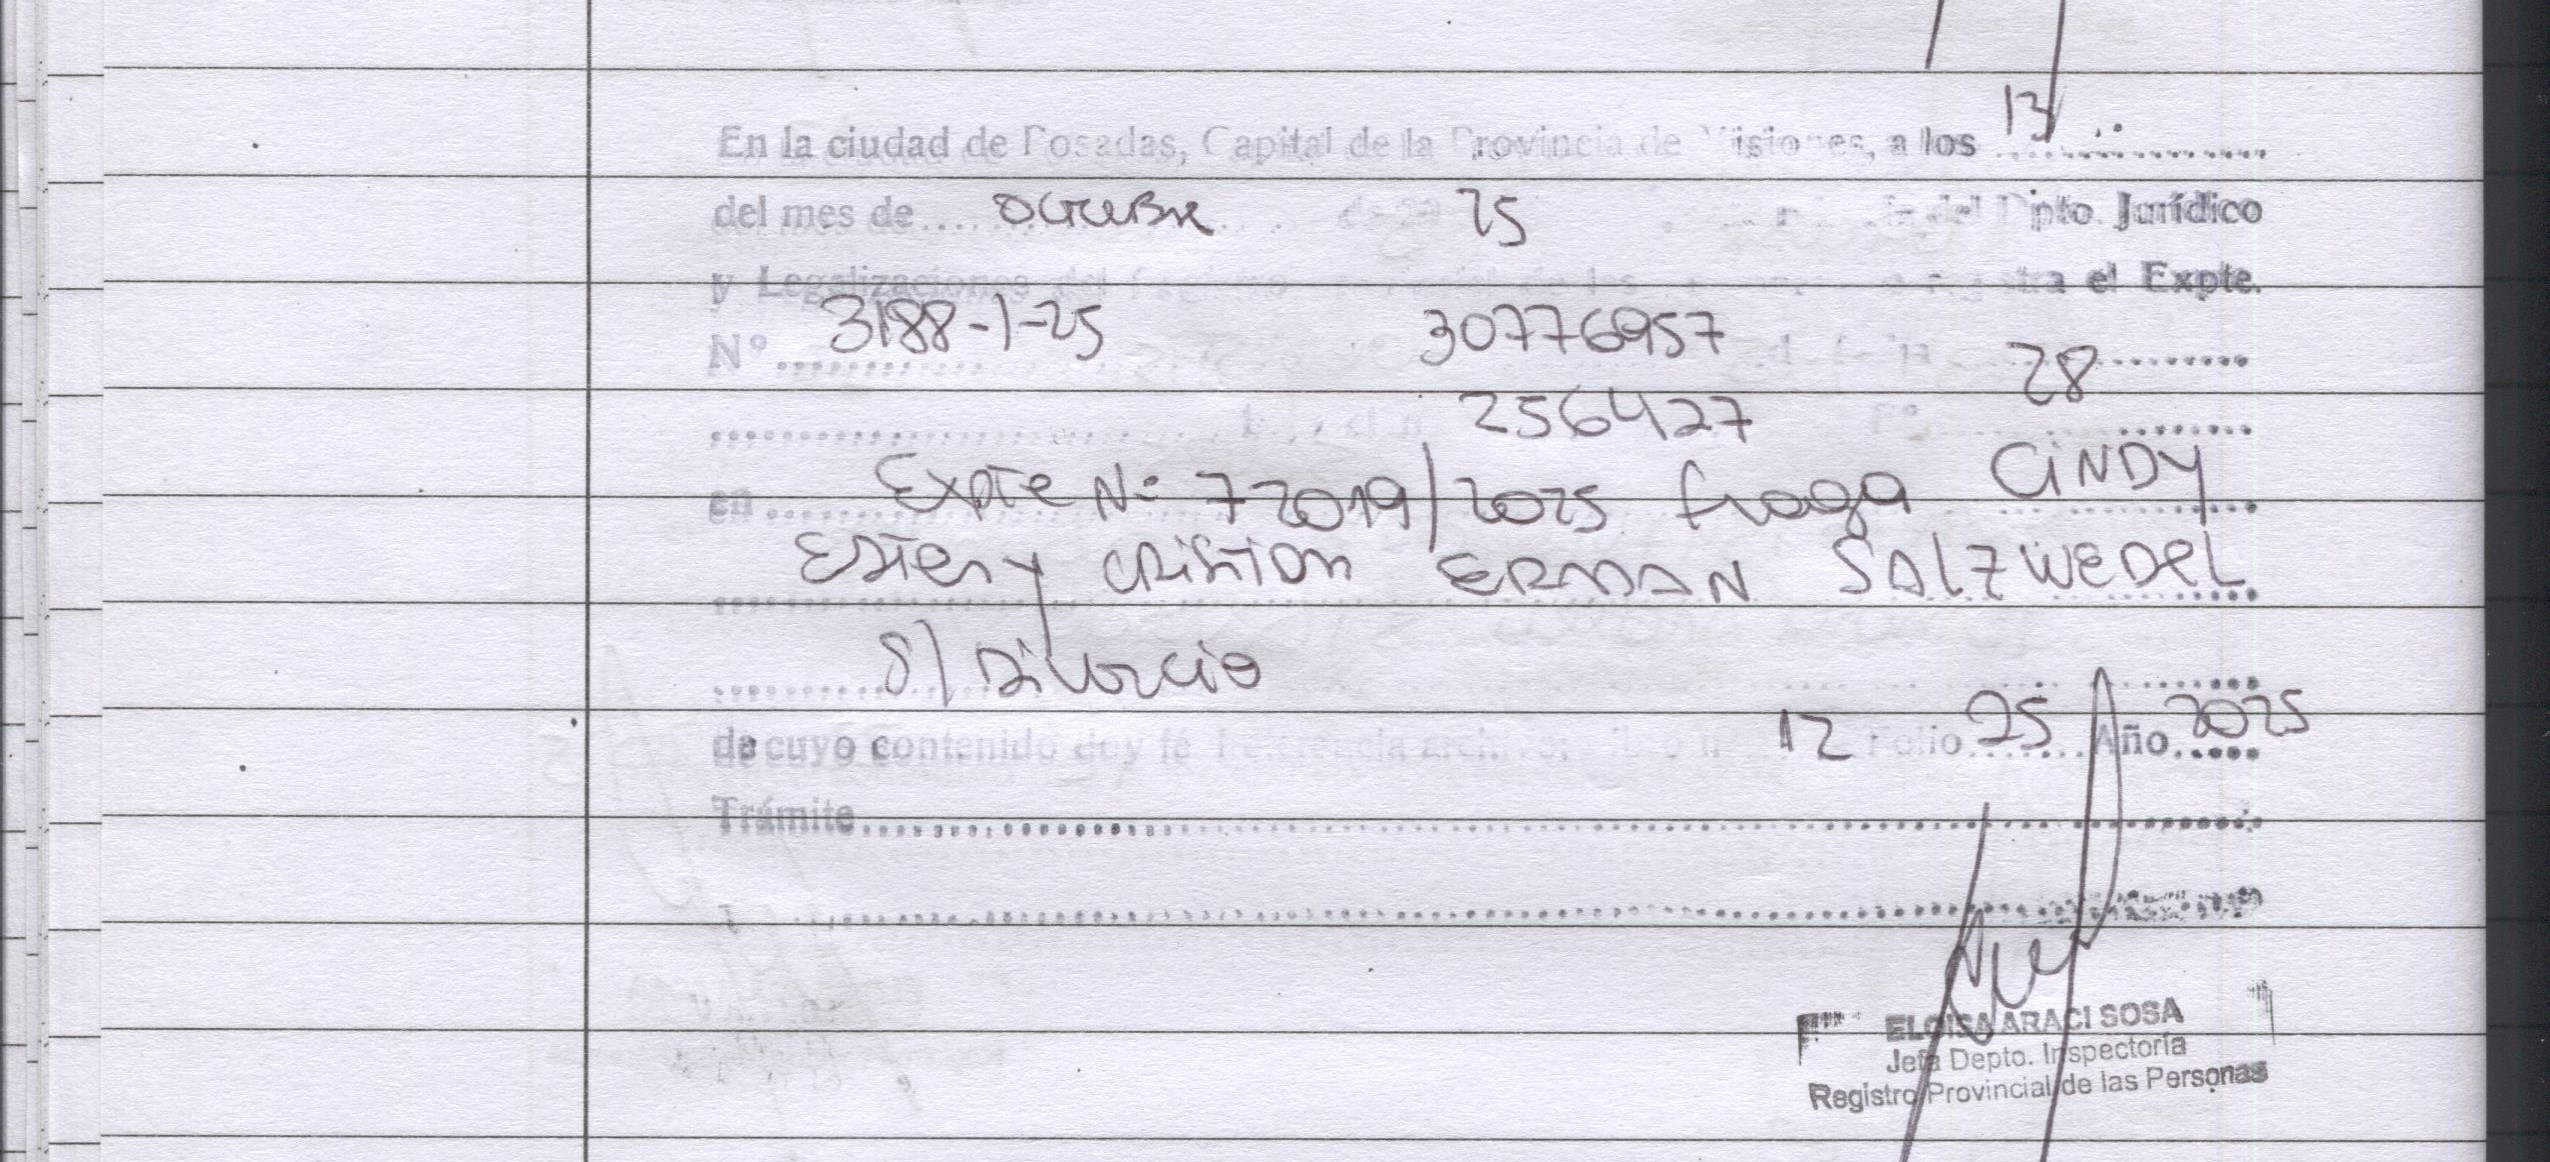 En la ciudad de Posadas, Capital de la Provincia de Misiones, a los 13
del mes de octubre de 20 25 del Dpto. Jurídico
y Legalizaciones del Registro registra el Expte.
Nº 3188-1-25 30776957 28
2564427 Fº
en Expte Nº 72019/2025 fraga CINDY
Ester y CRISTIAN ERMAN SALZWEDEL
S/ Divorcio
de cuyo contenido doy fé 12 Folio 25 Año 2025
Trámite
ELOISA ARACI SOSA
Jefa Depto. Inspectoría
Registro Provincial de las Personas